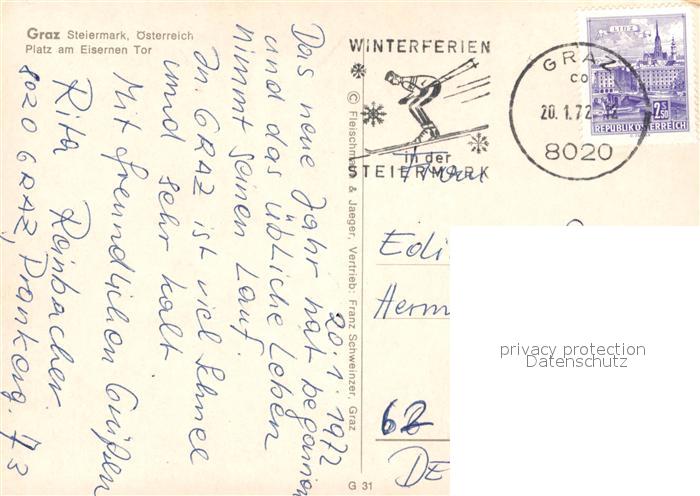 Graz Steiermark, Österreich
Platz am Eisernen Tor
20.1.1972
Das neue Jahr hat begonnen
und das übliche Leben
nimmt seinen Lauf.
In GRAZ ist viel Schnee
und sehr kalt.
Mit freundlichen Grüßen
Rita Reinbacher
8020 GRAZ, Prankerg. 73
© Fleischmann & Jaeger, Vertrieb: Franz Schweinzer, Graz
G 31
WINTERFERIEN
in der
STEIERMARK
GRAZ
20.1.72
8020
LINZ
2.50
REPUBLIK ÖSTERREICH
Frau
Edi
Herm
62
DE
privacy protection
Datenschutz